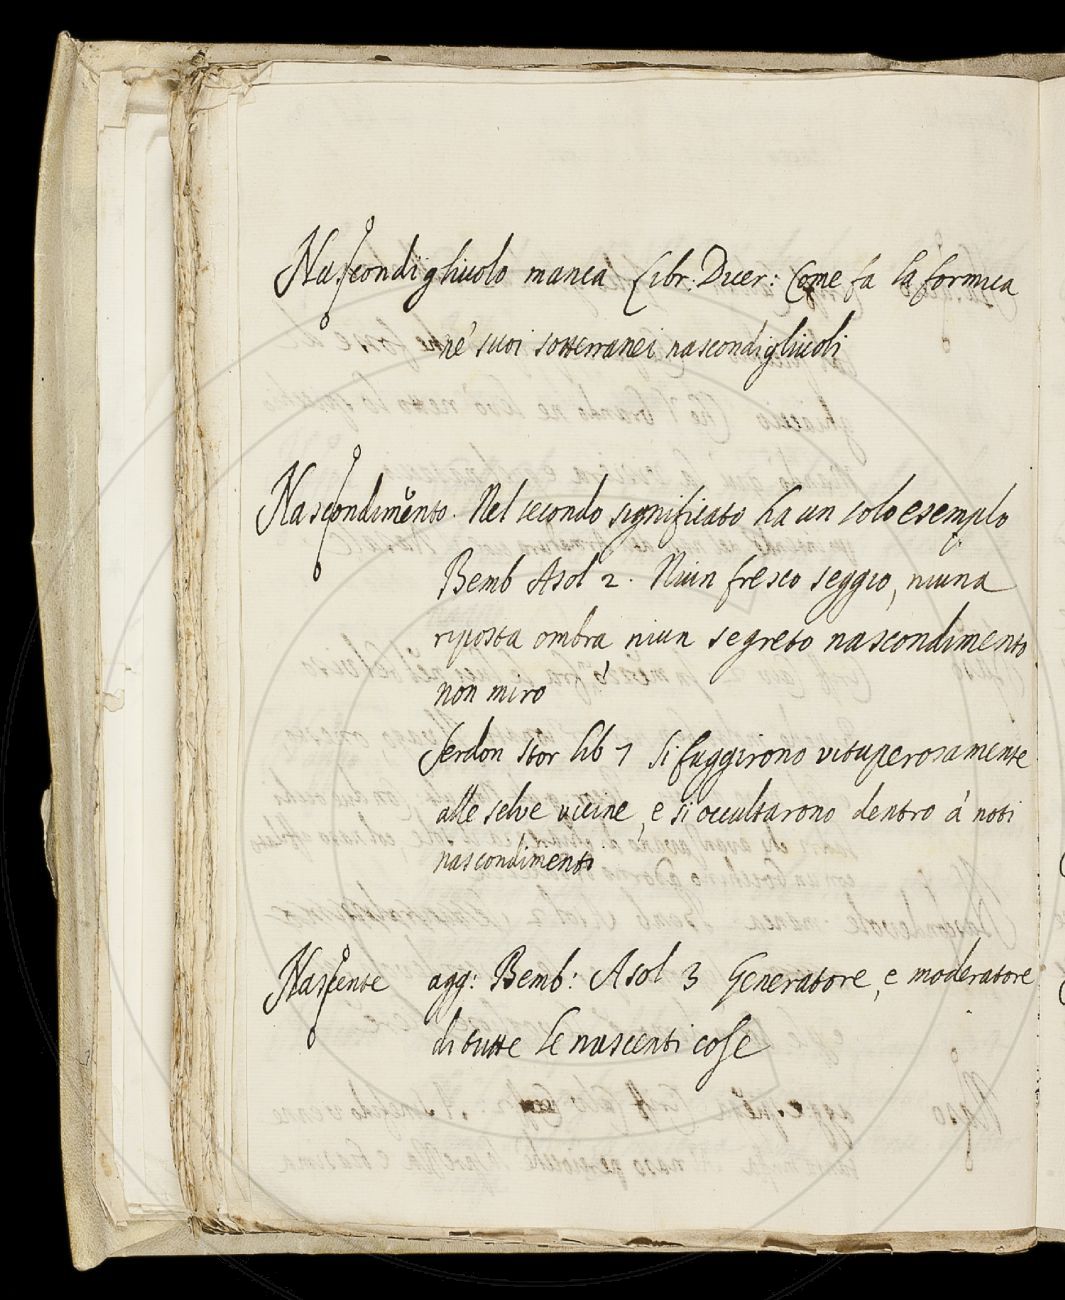 Nascondigliuolo manca Libr: Dicer: Come fa la formica
ne' suoi sotterranei nascondigliuoli
Nascondimento. Nel secondo significato ha un solo esemplo
Bemb Asol 2. Niun fresco seggio, niuna
riposta ombra niun segreto nascondimento
non mirò
Serdon stor lib 1 Si fuggirono vituperosamente
alle selve vicine, e si occultarono dentro à noti
nascondimenti
Nascente agg: Bemb: Asol 3 Generatore, e moderatore
di tutte le nascenti cose